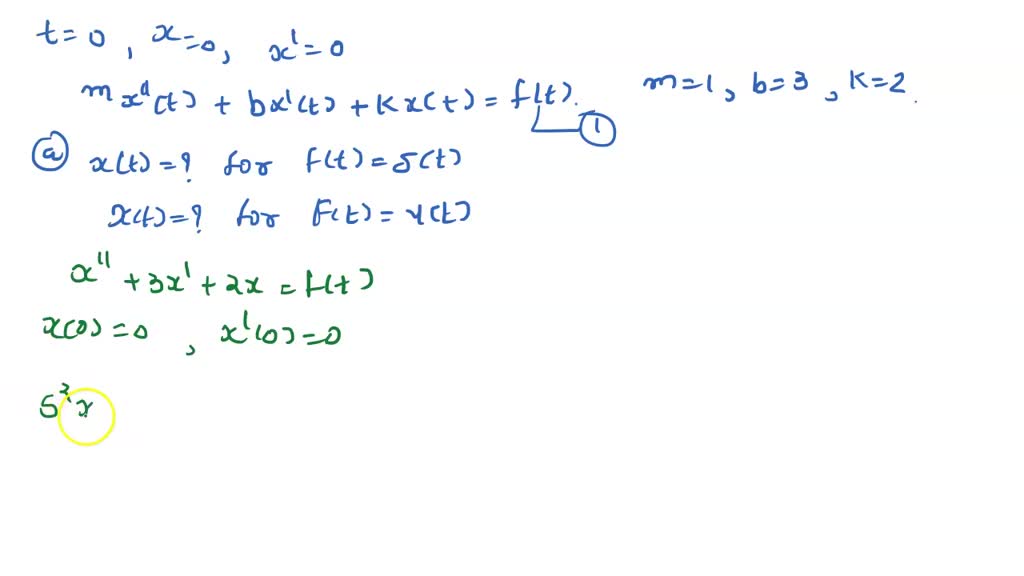 t=0, x=0, x'=0
m x''(t) + bx'(t) + Kx(t) = f(t). m=1, b=3, K=2.
1
a x(t)=? for f(t)=δ(t)
x(t)=? for F(t)=u(t)
x'' + 3x' + 2x = f(t)
x(0)=0, x'(0)=0
S²x